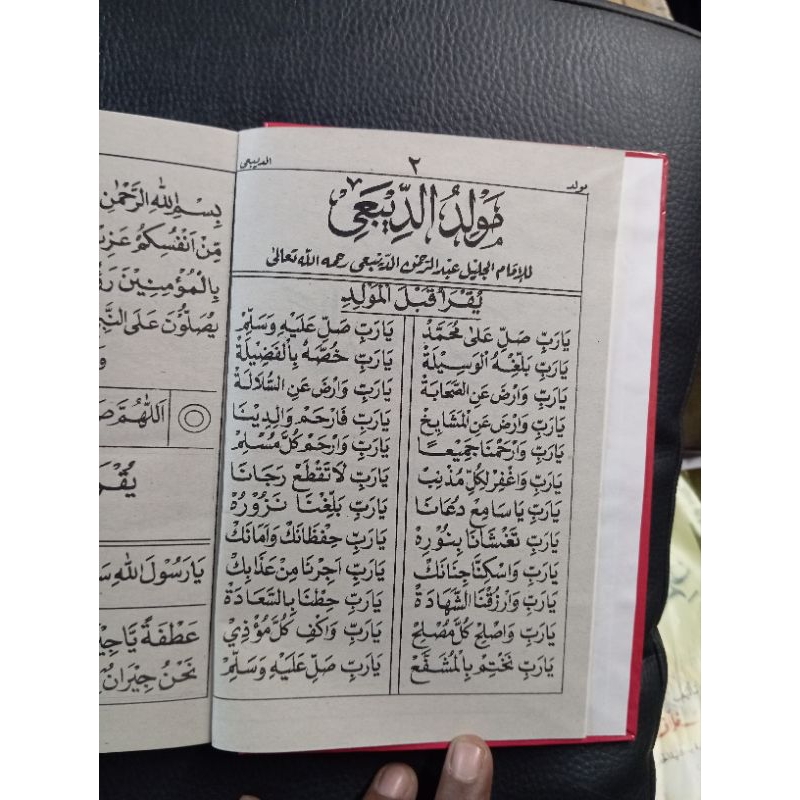 مولد
٢
الديبعي
مَولِدُ الدِّيبَعِي
للإمَام الجَلِيْل عَبْد الرَّحْمٰن الدَّيْبَعِي رحمه الله تَعَالىٰ
يُقْرَأُ قَبْلَ المَوْلِدِ
يَارَبِّ صَلِّ عَلىٰ مُحَمَّدْ يَارَبِّ صَلِّ عَلَيْهِ وَسَلِّمْ
يَارَبِّ بَلِّغْهُ الْوَسِيْلَةْ يَارَبِّ خُصَّهُ بِالْفَضِيْلَةْ
يَارَبِّ وَارْضَ عَنِ الصَّحَابَةْ يَارَبِّ وَارْضَ عَنِ السُّلَالَةْ
يَارَبِّ وَارْضَ عَنِ الْمَشَايِخْ يَارَبِّ فَارْحَمْ وَالِدِيْنَا
يَارَبِّ وَارْحَمْنَا جَمِيْعًا يَارَبِّ وَارْحَمْ كُلَّ مُسْلِمْ
يَارَبِّ وَاغْفِرْ لِكُلِّ مُذْنِبْ يَارَبِّ لَاتَقْطَعْ رَجَانَا
يَارَبِّ يَاسَامِعْ دُعَانَا يَارَبِّ بَلِّغْنَا نَزُوْرُهْ
يَارَبِّ تَغْشَانَا بِنُوْرِهْ يَارَبِّ حِفْظَانَكْ وَاَمَانَكْ
يَارَبِّ وَاسْكِنَّا جِنَانَكْ يَارَبِّ اَجِرْنَا مِنْ عَذَابِكْ
يَارَبِّ وَارْزُقْنَا الشَّهَادَةْ يَارَبِّ حِطْنَا بِالسَّعَادَةْ
يَارَبِّ وَاصْلِحْ كُلَّ مُصْلِحْ يَارَبِّ وَاكْفِ كُلَّ مُؤْذِيْ
يَارَبِّ نَخْتِمْ بِالْمُشَفَّعْ يَارَبِّ صَلِّ عَلَيْهِ وَسَلِّمْ
بِسْمِ اللهِ الرَّحْمٰنِ
مِنْ اَنْفُسِكُمْ عَزِيْ
بِالْمُؤْمِنِيْنَ
يُصَلُّوْنَ عَلَى النَّبِيِّ
اَللّٰهُمَّ
يُقْرَ
يَارَسُوْلَ اللهِ سَ
عَطْفَةً يَاجِيْ
نَحْنُ جِيْرَانُ